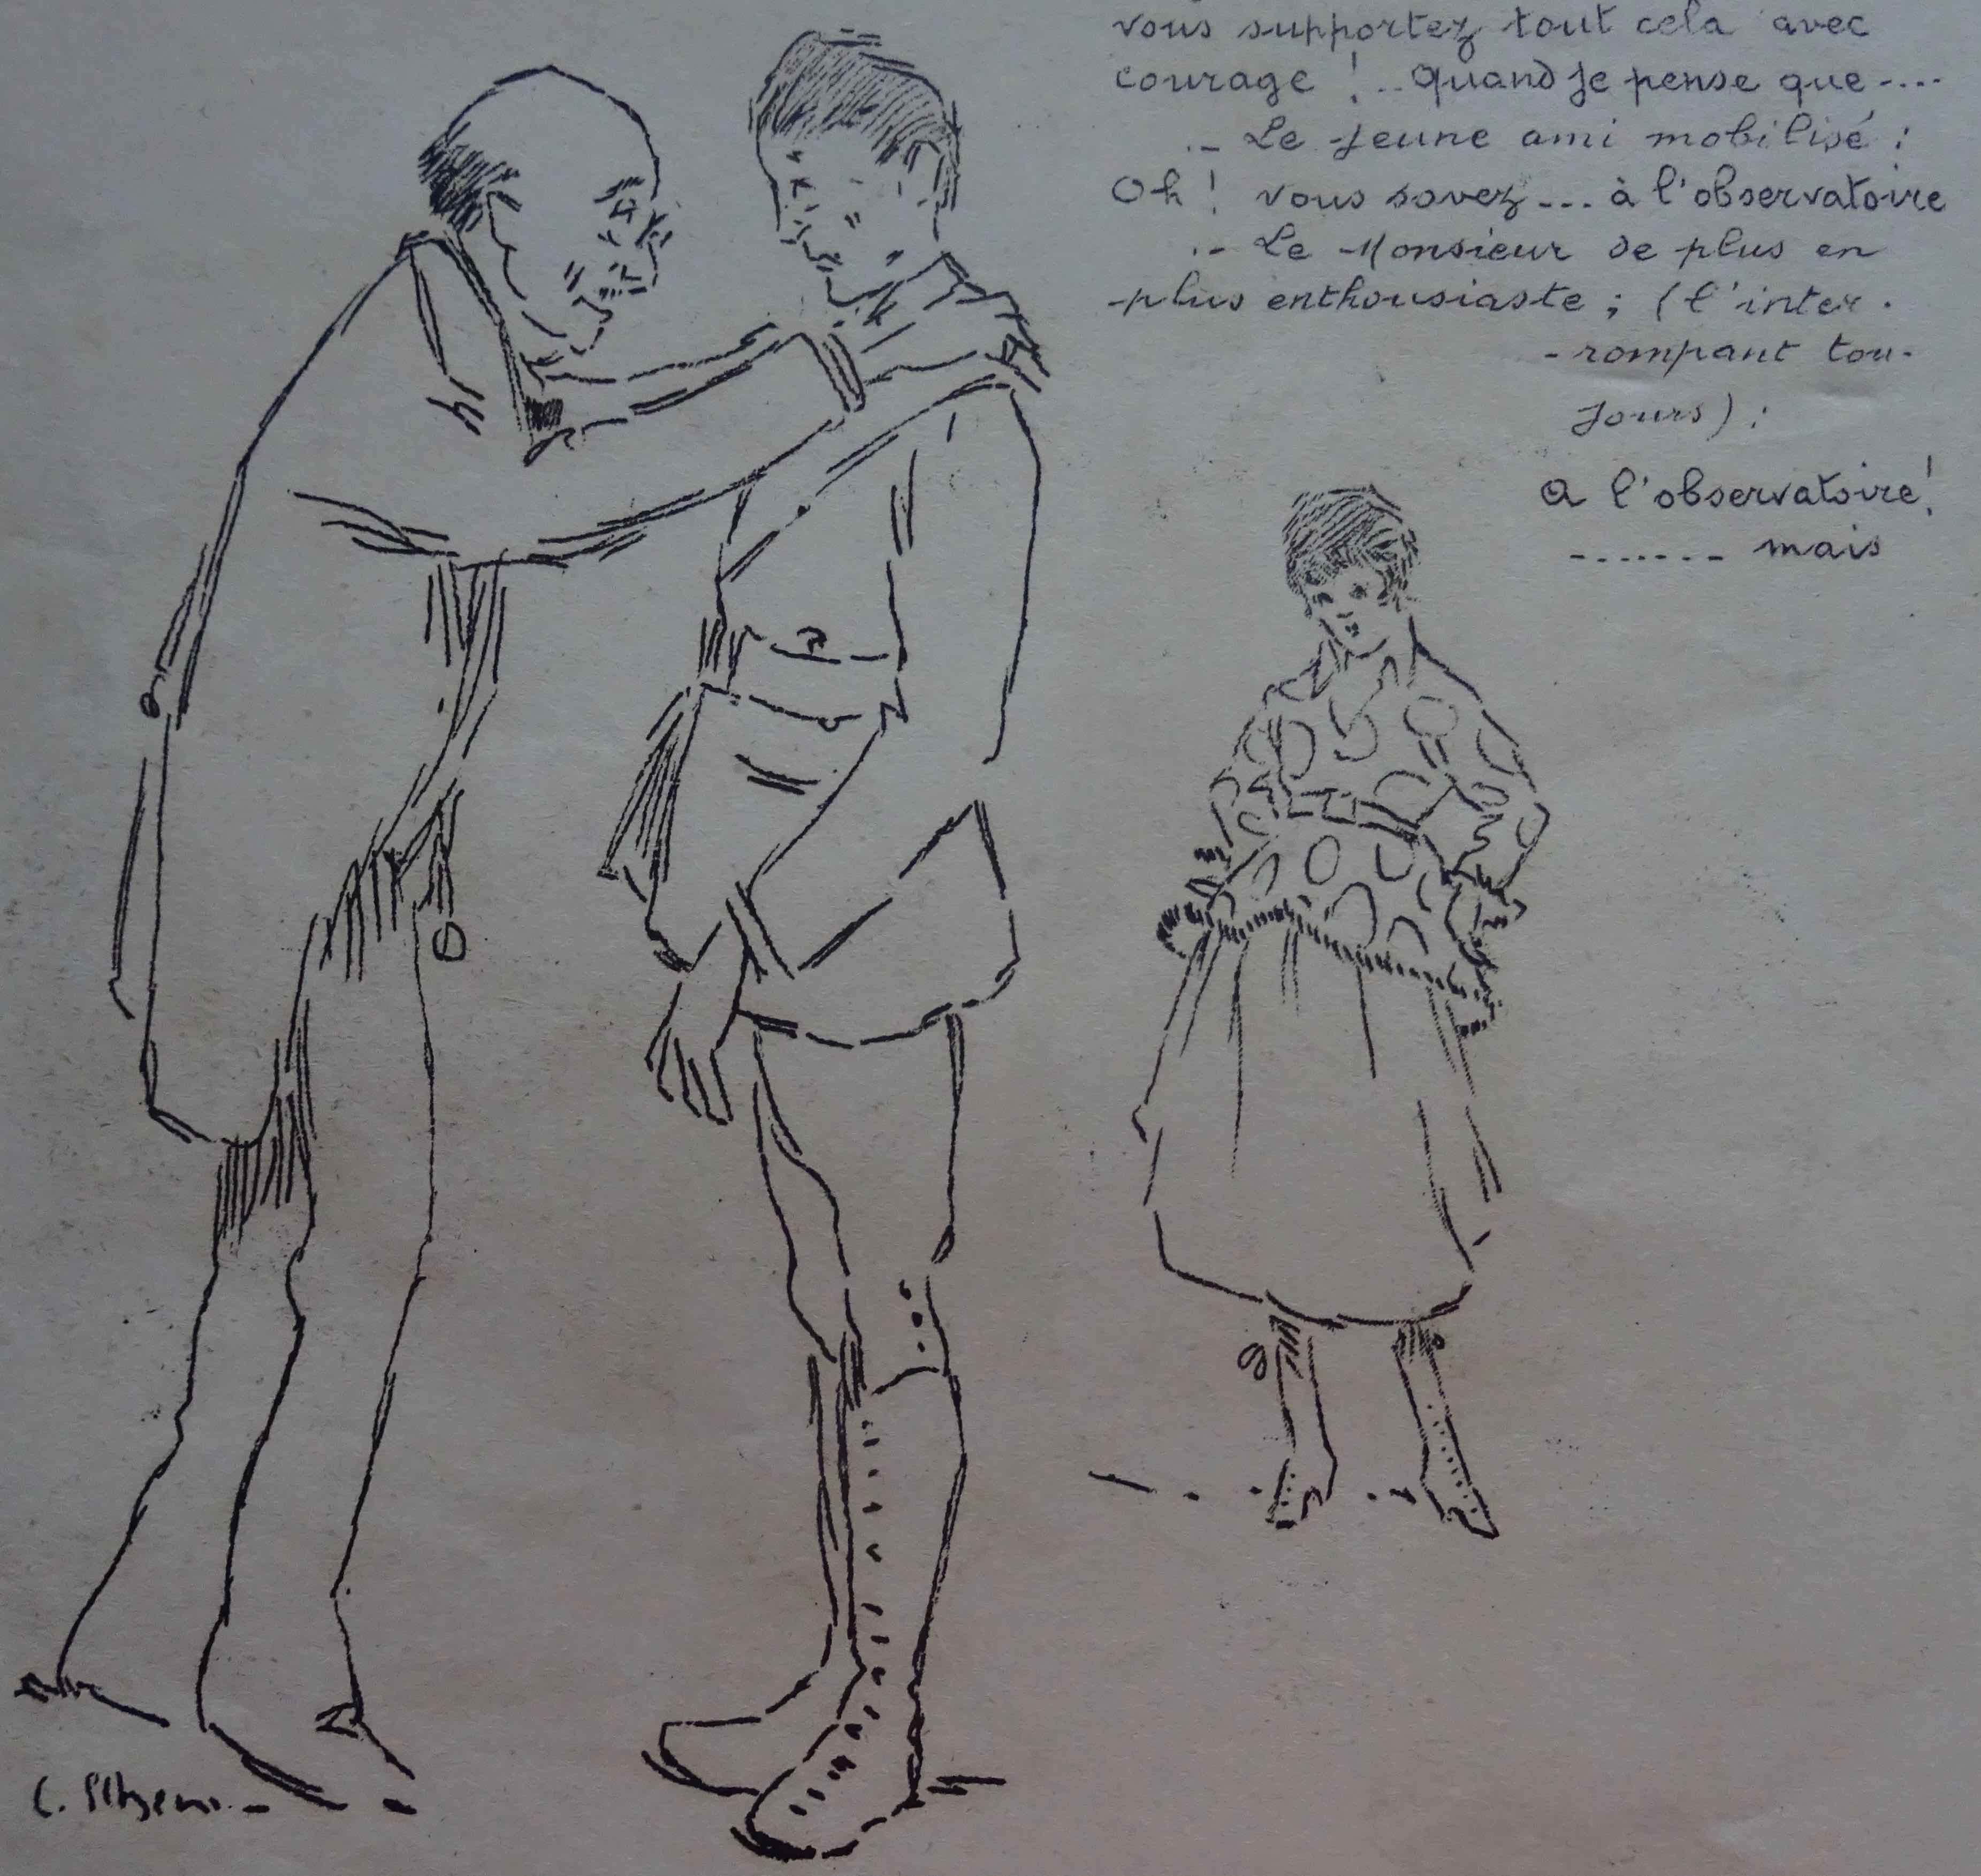 vous supportez tout cela avec
courage ! .. Quand je pense que ....
.- Le jeune ami mobilisé :
Oh ! vous savez ... à l'observatoire
.- Le Monsieur de plus en
plus enthousiaste ; (l'inter.
-rompant tou-
jours) :
A l'observatoire !
....... mais
C.